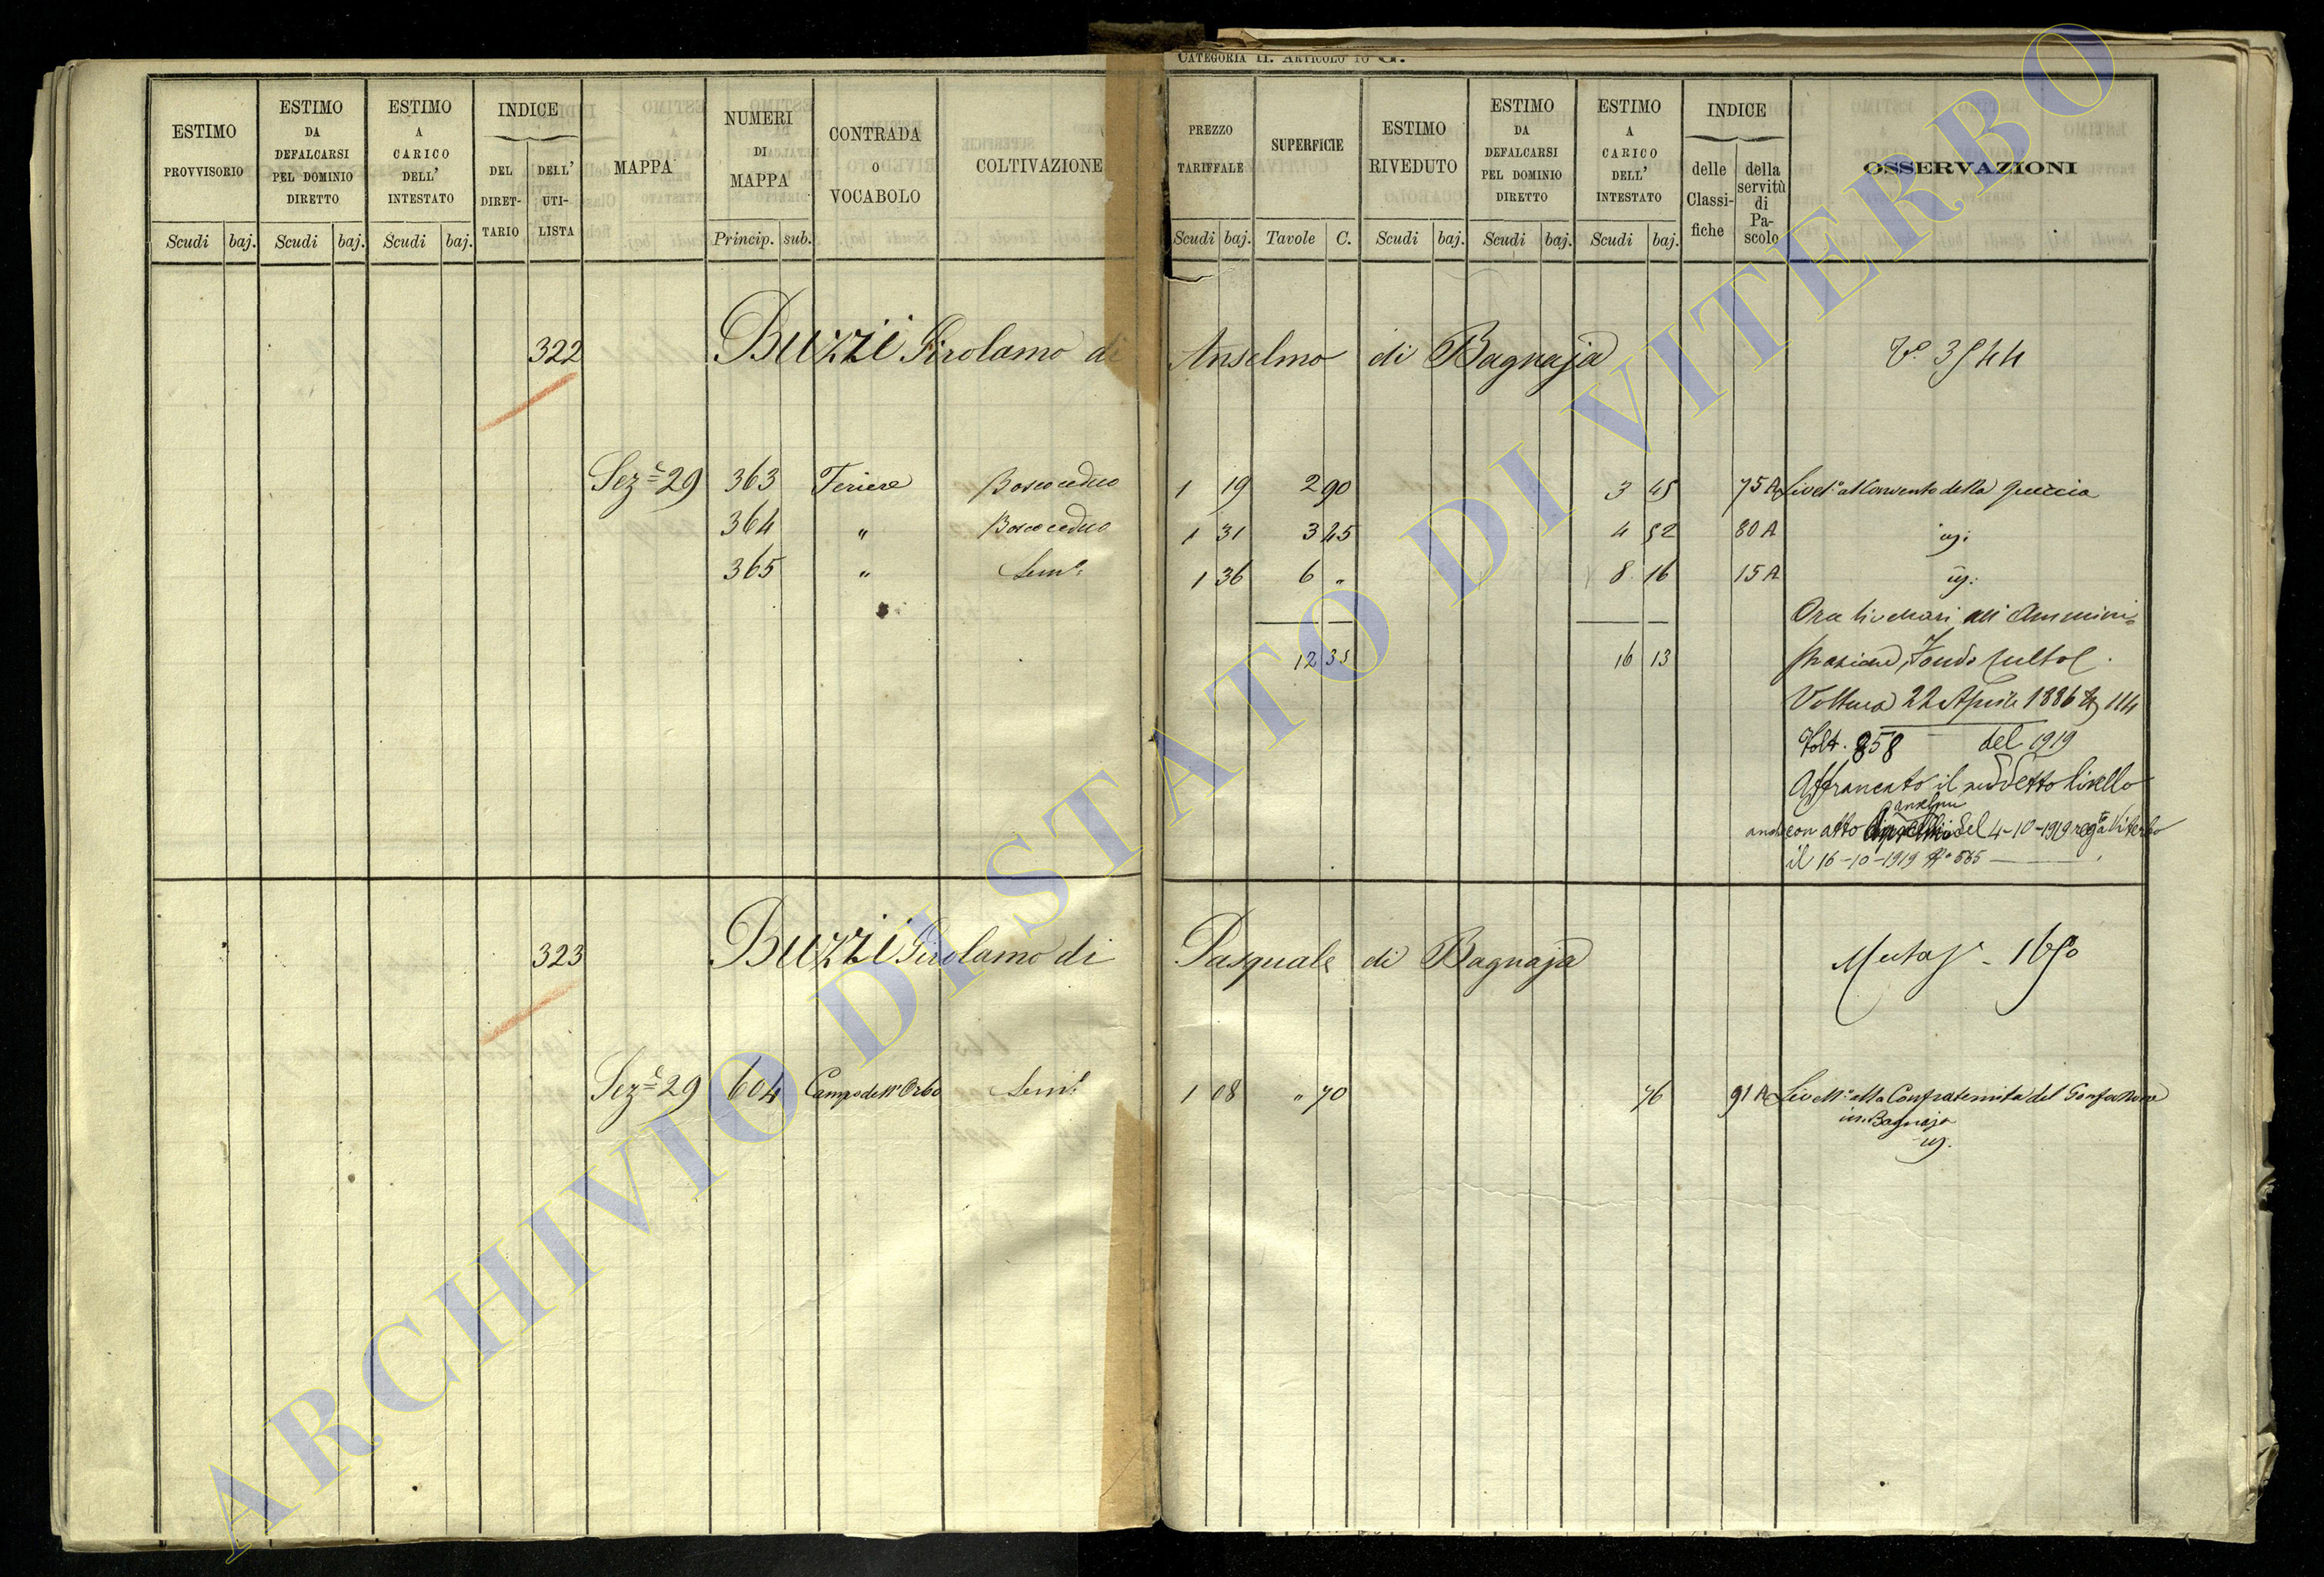 CATEGORIA II. ARTICOLO 10 G.
ESTIMO PROVVISORIO
Scudi baj.
ESTIMO DA DEFALCARSI PEL DOMINIO DIRETTO
Scudi baj.
ESTIMO A CARICO DELL' INTESTATO
Scudi baj.
INDICE
DEL DIRET-TARIO
DELL' UTI-LISTA
MAPPA
NUMERI DI MAPPA
Princip. sub.
CONTRADA O VOCABOLO
COLTIVAZIONE
PREZZO TARIFFALE
Scudi baj.
SUPERFICIE
Tavole C.
ESTIMO RIVEDUTO
Scudi baj.
ESTIMO DA DEFALCARSI PEL DOMINIO DIRETTO
Scudi baj.
ESTIMO A CARICO DELL' INTESTATO
Scudi baj.
INDICE
delle Classi-fiche
della servitù di Pa-scolo
OSSERVAZIONI
322 Buzzi Girolamo di Anselmo di Bagnaja
Sez.e 29 363 Feriere Bosco ceduo 1 19 2 90 3 45 75 A Livell.o al Convento della Quercia
364 " Bosco ceduo 1 31 3 45 4 52 80 A
365 " Sem.o 1 36 6 " 8 16 15 A
12 35 16 13
Ora livellari all' Ammini=
strazione Fondo Culto
Voltura 22 Aprile 1886 N 114
Volt. 858 del 1919
Affrancato il suddetto livello
con atto Anselmi del 4-10-1919 reg.to a Viterbo
il 16-10-1919 N° 565
323 Buzzi Girolamo di Pasquale di Bagnaja
Sez.e 29 604 Campo dell' Orbo Sem.o 1 08 " 70 76 91 A Livell.o alla Confraternita del Gonfalone
in Bagnaja
ARCHIVIO DI STATO DI VITERBO